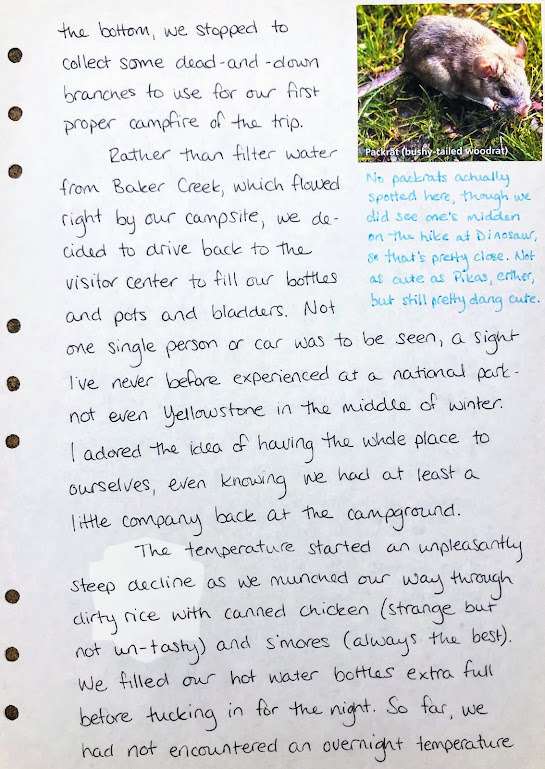 the bottom, we stopped to
collect some dead-and-down
branches to use for our first
proper campfire of the trip.
Rather than filter water
from Baker Creek, which flowed
right by our campsite, we de-
cided to drive back to the
visitor center to fill our bottles
and pots and bladders. Not
one single person or car was to be seen, a sight
I've never before experienced at a national park-
not even Yellowstone in the middle of winter.
I adored the idea of having the whole place to
ourselves, even knowing we had at least a
little company back at the campground.
The temperature started an unpleasantly
steep decline as we munched our way through
dirty rice with canned chicken (strange but
not un-tasty) and s'mores (always the best).
We filled our hot water bottles extra full
before tucking in for the night. So far, we
had not encountered an overnight temperature
Packrat (bushy-tailed woodrat)
No packrats actually
spotted here, though we
did see one's midden
on the hike at Dinosaur,
so that's pretty close. Not
as cute as Pikas, either,
but still pretty dang cute.